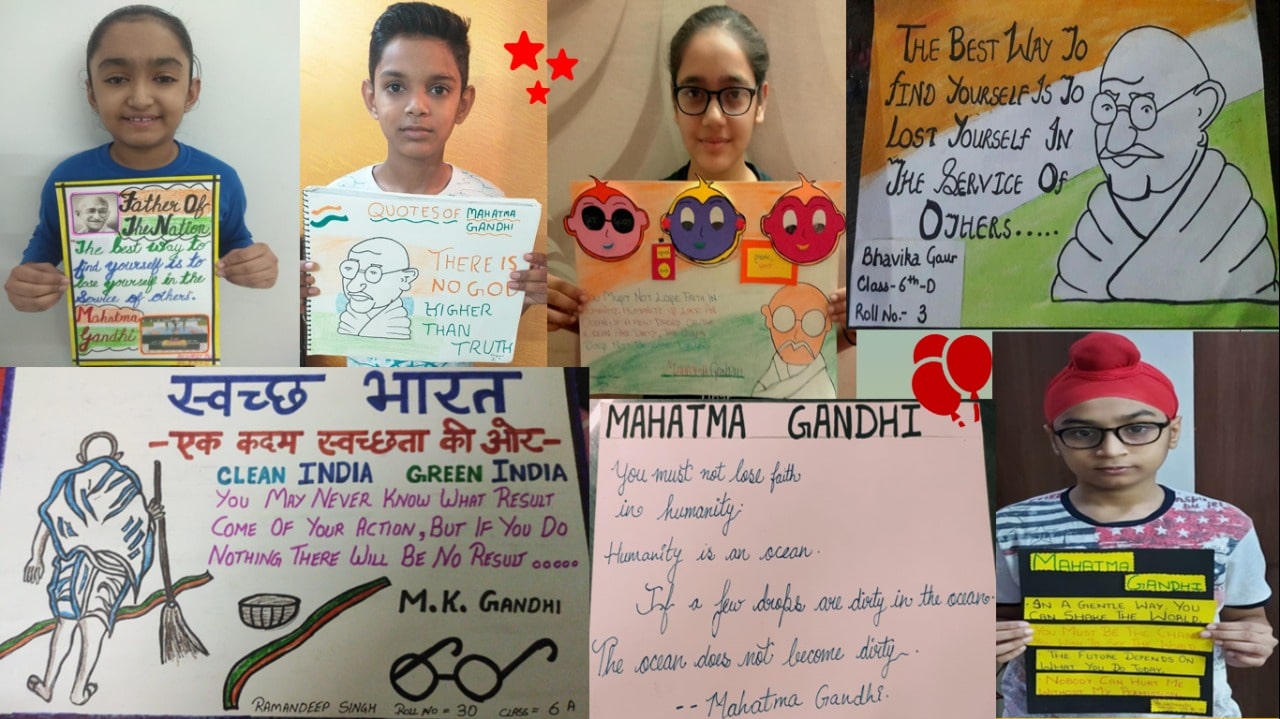 Father Of
The Nation
The best way to
find yourself is to
lose yourself in the
Service of others.
Mahatma
Gandhi
QUOTES OF MAHATMA
GANDHI
THERE IS
NO GOD
HIGHER
THAN
TRUTH
You Must Not Lose Faith In
Mahatma Gandhi
THE BEST WAY TO
FIND YOURSELF IS TO
LOST YOURSELF IN
THE SERVICE OF
OTHERS.....
Bhavika Gaur
Class-6th-D
Roll No.- 3
स्वच्छ भारत
-एक कदम स्वच्छता की ओर-
CLEAN INDIA GREEN INDIA
YOU MAY NEVER KNOW WHAT RESULT
COME OF YOUR ACTION, BUT IF YOU DO
NOTHING THERE WILL BE NO RESULT .....
M.K. GANDHI
RAMANDEEP SINGH ROLL NO = 30 CLASS = 6 A
MAHATMA GANDHI
You must not lose faith
in humanity.
Humanity is an ocean.
If a few drops are dirty in the ocean.
The ocean does not become dirty.
-- Mahatma Gandhi.
MAHATMA
GANDHI
IN A GENTLE WAY, YOU
CAN SHAKE THE WORLD.
YOU MUST BE THE CHANGE
THE FUTURE DEPENDS ON
WHAT YOU DO TODAY.
NOBODY CAN HURT ME
WITHOUT MY PERMISSION